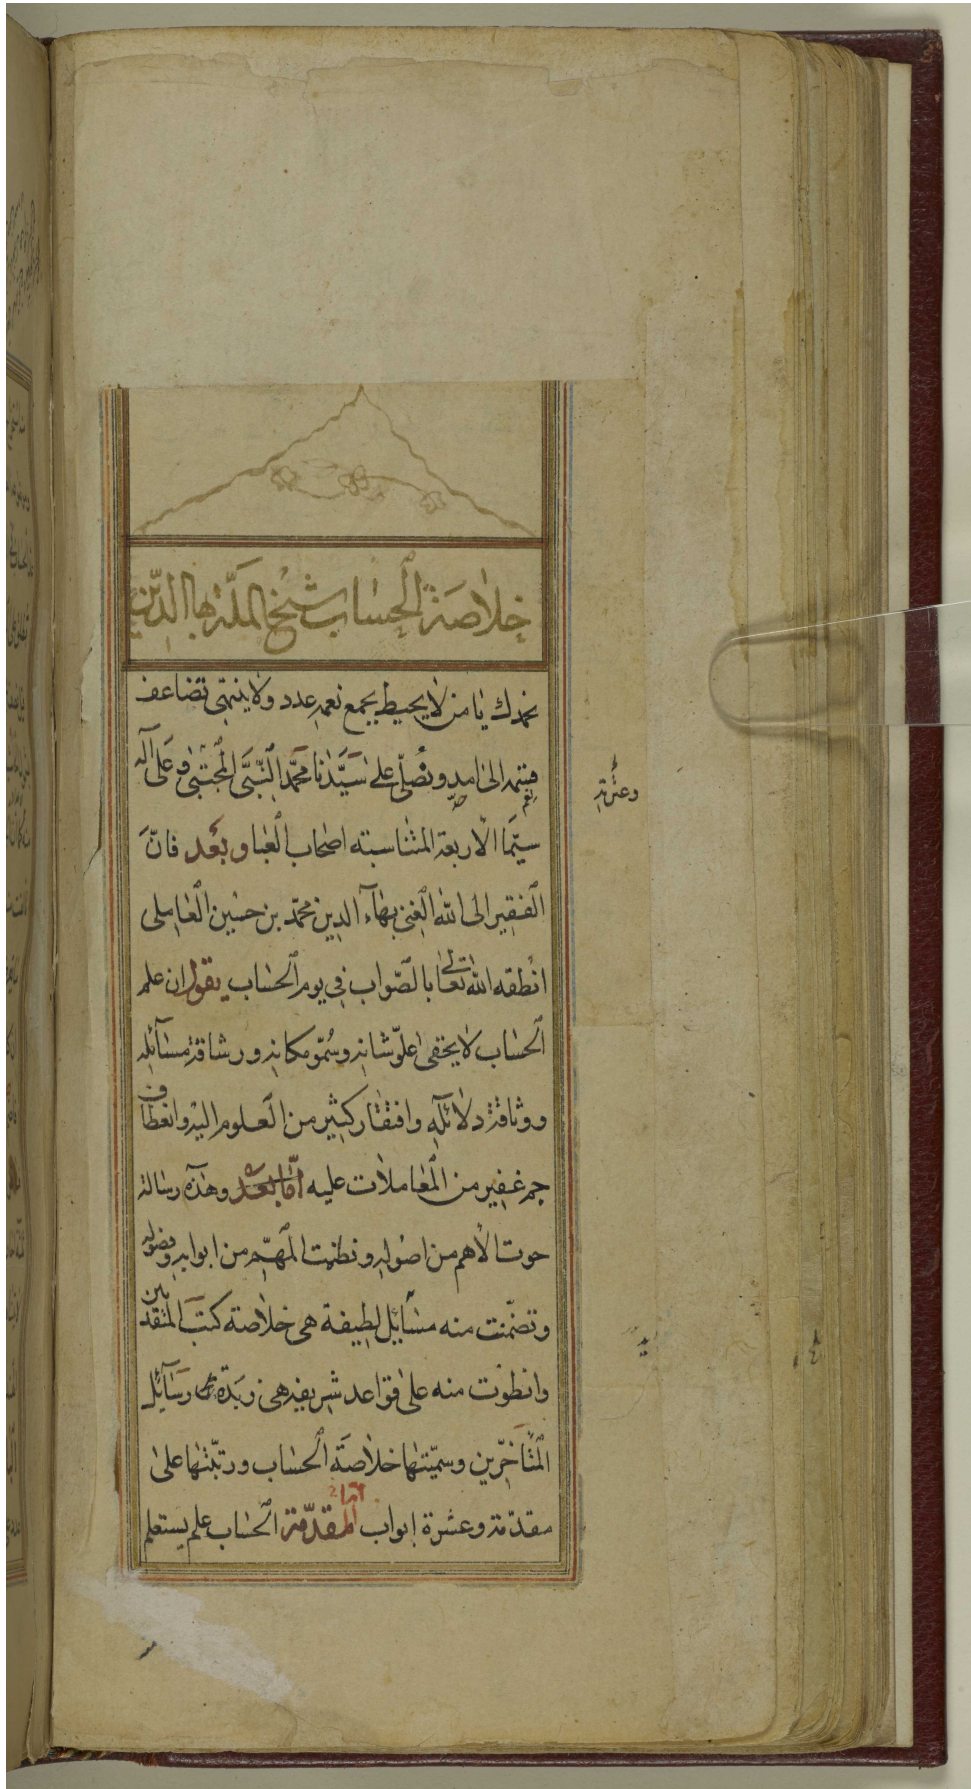 خلاصة الحساب شيخ الملة بها الدين
نحمدك يا من لا يحيط بجمع نعمه عدد ولا ينتهى تضاعف
الى امد ونصلّى على سيّدنا محمّد النّبىّ المجتبى وعلى آله
وعترته
سيّما الاربعة المتناسبته اصحاب العبا وبعد فانّ
الفقير الى الله الغنى بهآء الدين محمّد بن حسين العاملى
انطقه الله تعالى بالصّواب فى يوم الحساب يقول ان علم
الحساب لا يخفى علوّ شانه وسموّ مكانه ورشاقة مسآئله
ووثاقة دلائله وافتقار كثير من العلوم اليه وانعطاف
جم غفير من المعاملات عليه امّا بعد وهذه رسالة
حوت الاهم من اصوله ونظمت المهّم من ابوابه وفصوله
وتضمّنت منه مسايل لطيفة هى خلاصة كتب المتقدمين
وانطوت منه على قواعد شريفه هى زبدة رسآئل
المتأخّرين وسمّيتها خلاصة الحساب ورتّبتها على
مقدّمة وعشرة ابواب امّا المقدّمة الحساب علم يستعلم